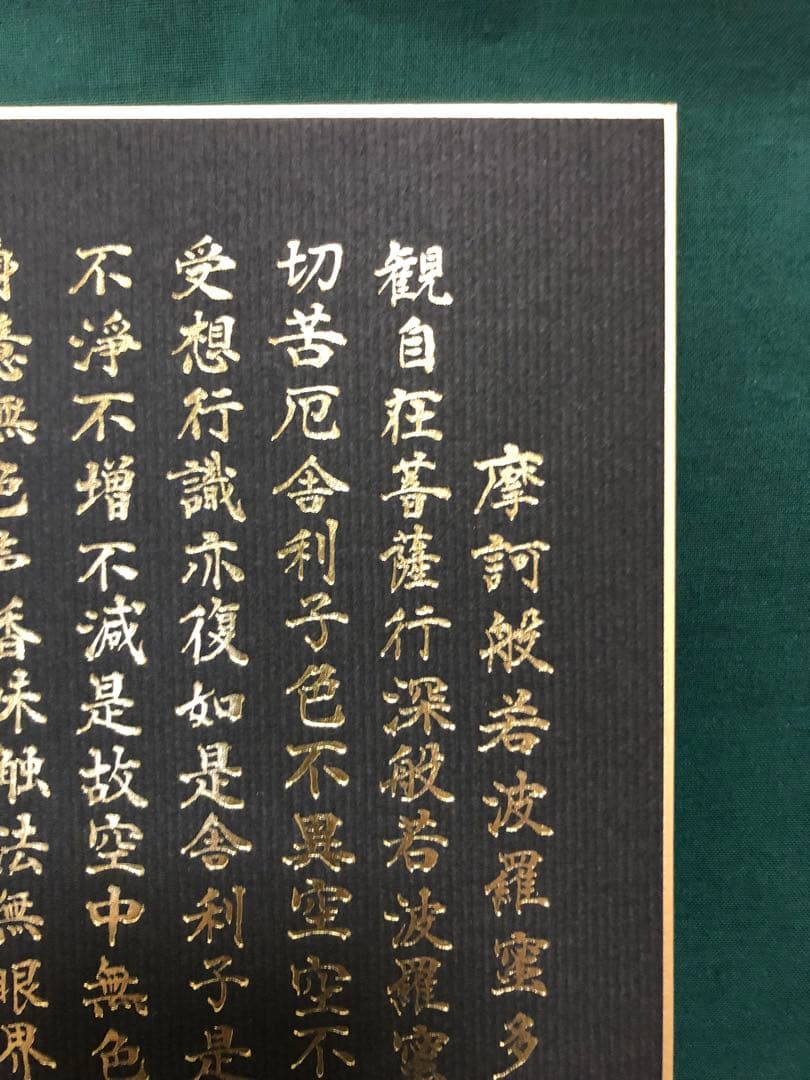 摩訶般若波羅蜜多
観自在菩薩行深般若波羅蜜
切苦厄舎利子色不異空空不
受想行識亦復如是舎利子是
不浄不増不減是故空中無色
身意無色声香味触法無眼界